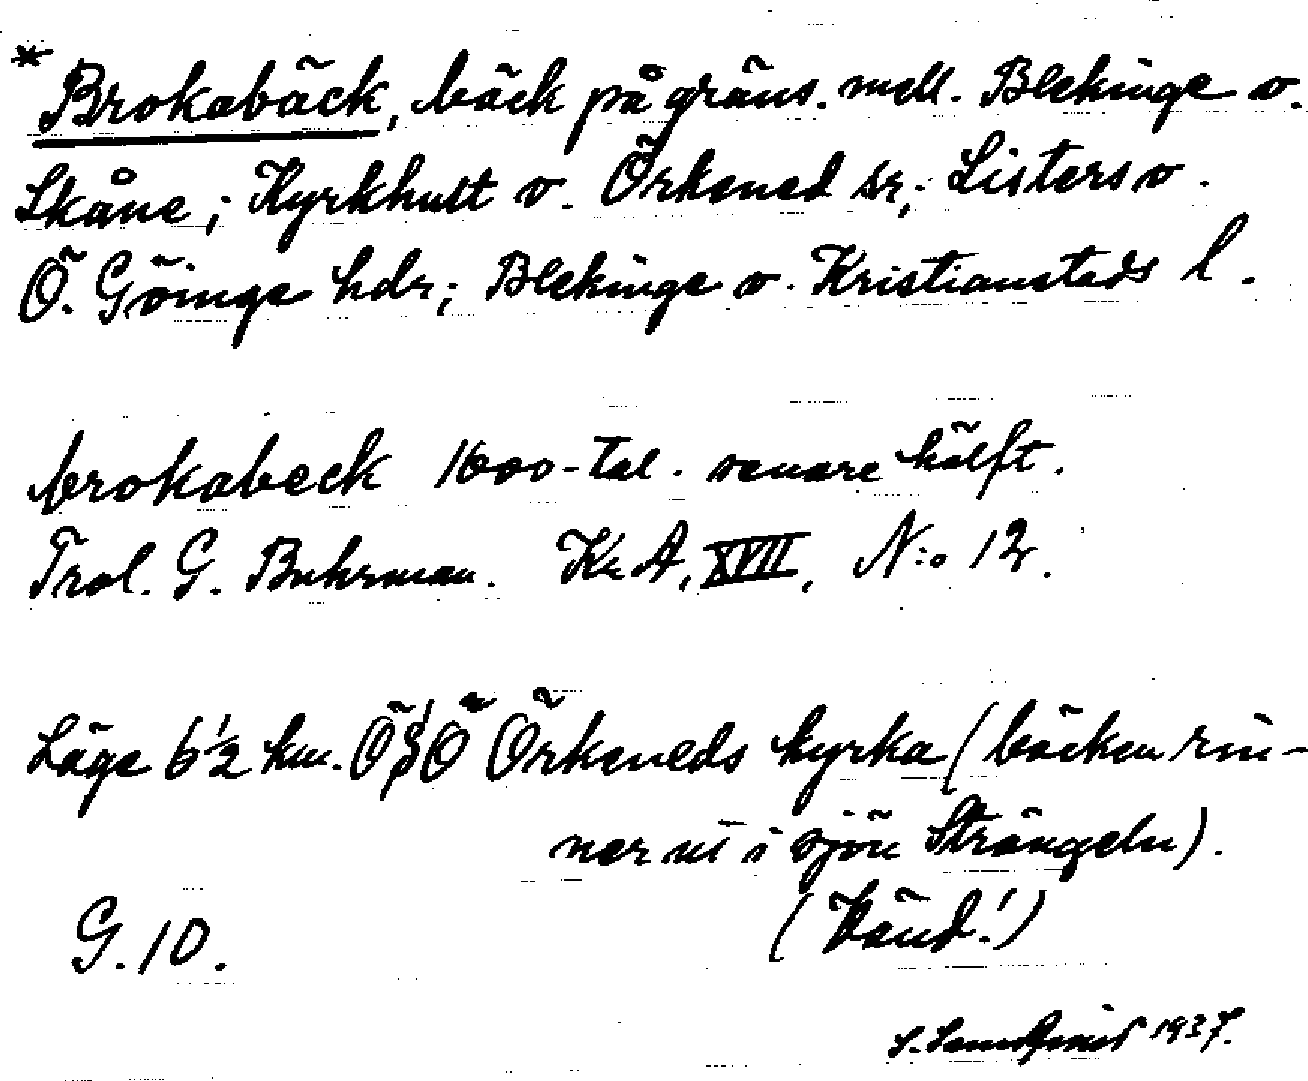 * Brokabäck, bäck på gräns. mell. Blekinge o.
Skåne; Kyrkhult o. Örkened sr; Listers o.
Ö. Göinge hdr; Blekinge o. Kristianstads l.
brokabeck 1600-tal. senare hälft.
Trol. G. Buhrman. Kr A, XVII, N:o 12.
Läge 6 1/2 km. Ö§Ö Örkeneds kyrka (bäcken rin-
ner ut i sjön Strängeln).
(Vänd!)
G. 10.
S. 1937.